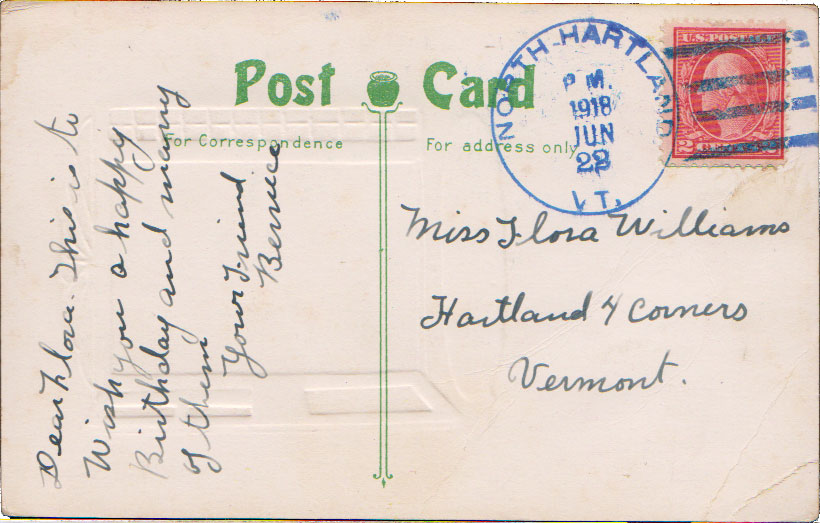 Post Card
For Correspondence
For address only
NORTH-HARTLAND
P M.
1918
JUN
22
VT.
U.S. POSTAGE
2 2
Dear Flora. This is to
Wish you a happy
Birthday and many
of them
Your Friend
Bernice
Miss Flora Williams
Hartland 4 Corners
Vermont.